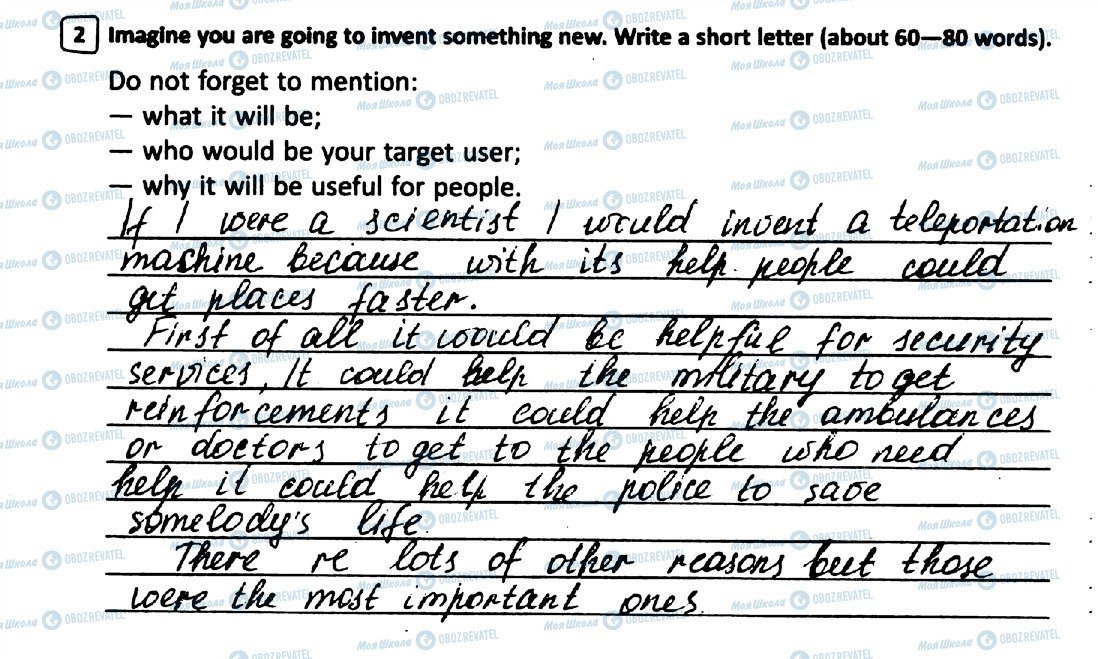 2 Imagine you are going to invent something new. Write a short letter (about 60—80 words).
Do not forget to mention:
— what it will be;
— who would be your target user;
— why it will be useful for people.
If I were a scientist I would invent a teleportation
mashine because with its help people could
get places faster.
First of all it would be helpful for security
services, It could help the military to get
reinforcements it could help the ambulances
or doctors to get to the people who need
help it could help the police to save
somebody's life.
There re lots of other reasons but those
were the most important ones.
МояШкола OBOZREVATEL